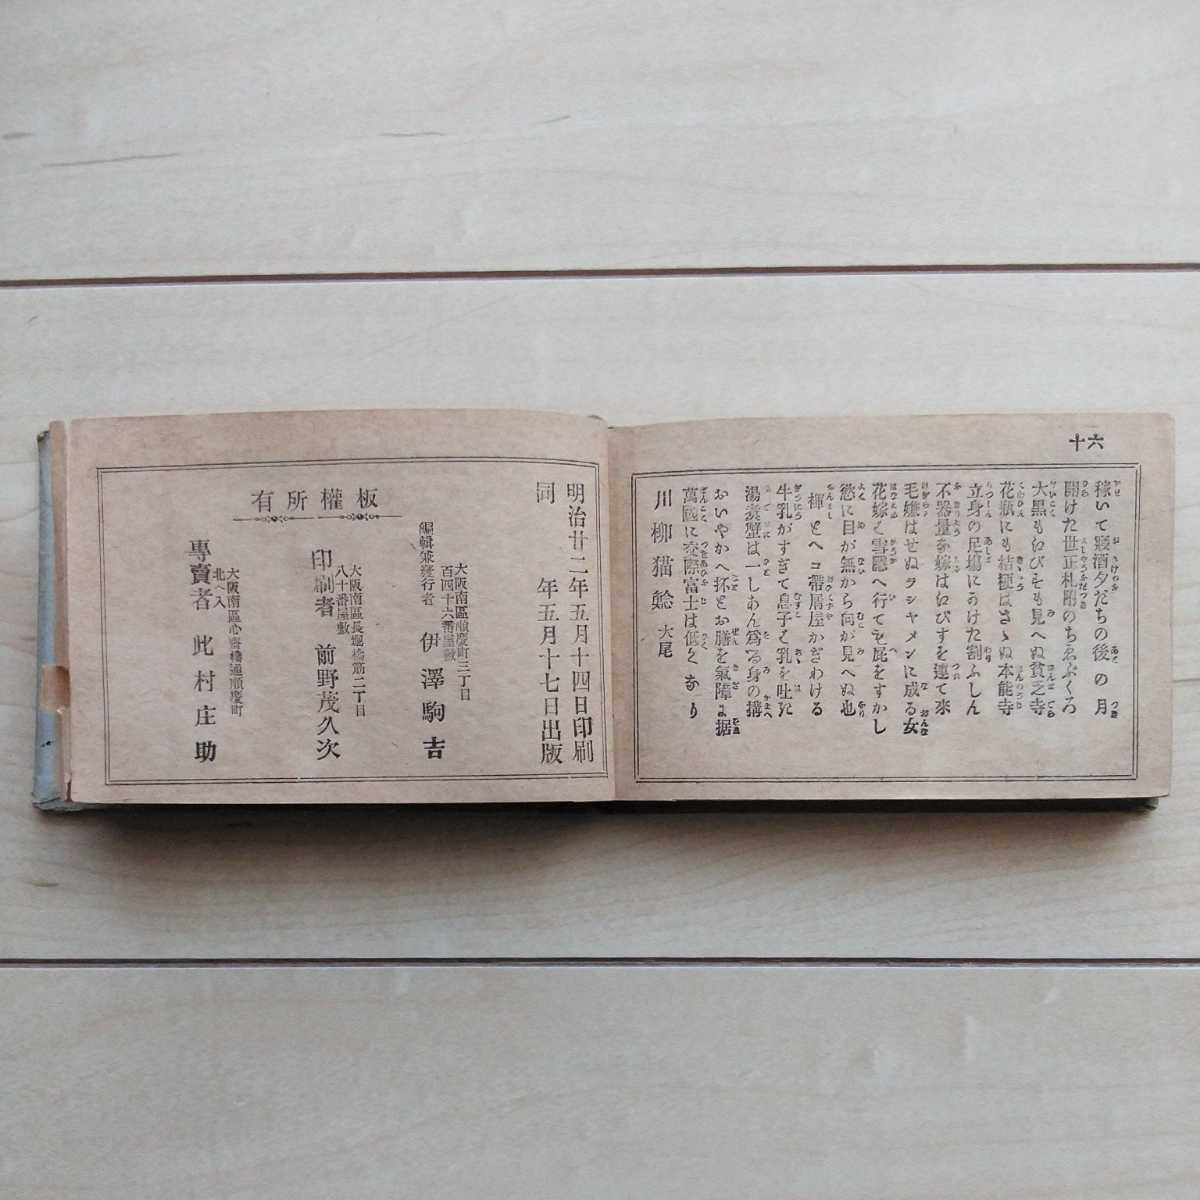 十六
稼いて寢酒夕だちの後の月
開けた世正札附のちゑぶくろ
大黒もゑびすも見へぬ貧乏寺
花瓶にも桔梗はさゝぬ本能寺
立身の足塲にうけた割ふしん
不器量な嫁はゑびすを連て來
毛嫌はせぬラシヤメンに成る女
花嫁ハ雪隱へ行ても屁をすかし
慾に目が無から向が見へぬ也
褌とヘコ帶屑屋かぎわける
牛乳がすぎて息子ハ乳を吐た
湯煮蟹は一しあん爲る身の搆
おいやかへ抔とお膳を氣障に据
萬國に交際富士は低くなり
川柳猫鯰 大尾
明治廿二年五月十四日印刷
同 年五月十七日出版
大阪南區順慶町三丁目
百四十六番屋敷
編輯兼發行者 伊澤駒吉
大阪南區長堀橋筋二丁目
八十番屋敷
印刷者 前野茂久次
板權所有
大阪南區心齋橋通順慶町
北へ入
專賣者 此村庄助